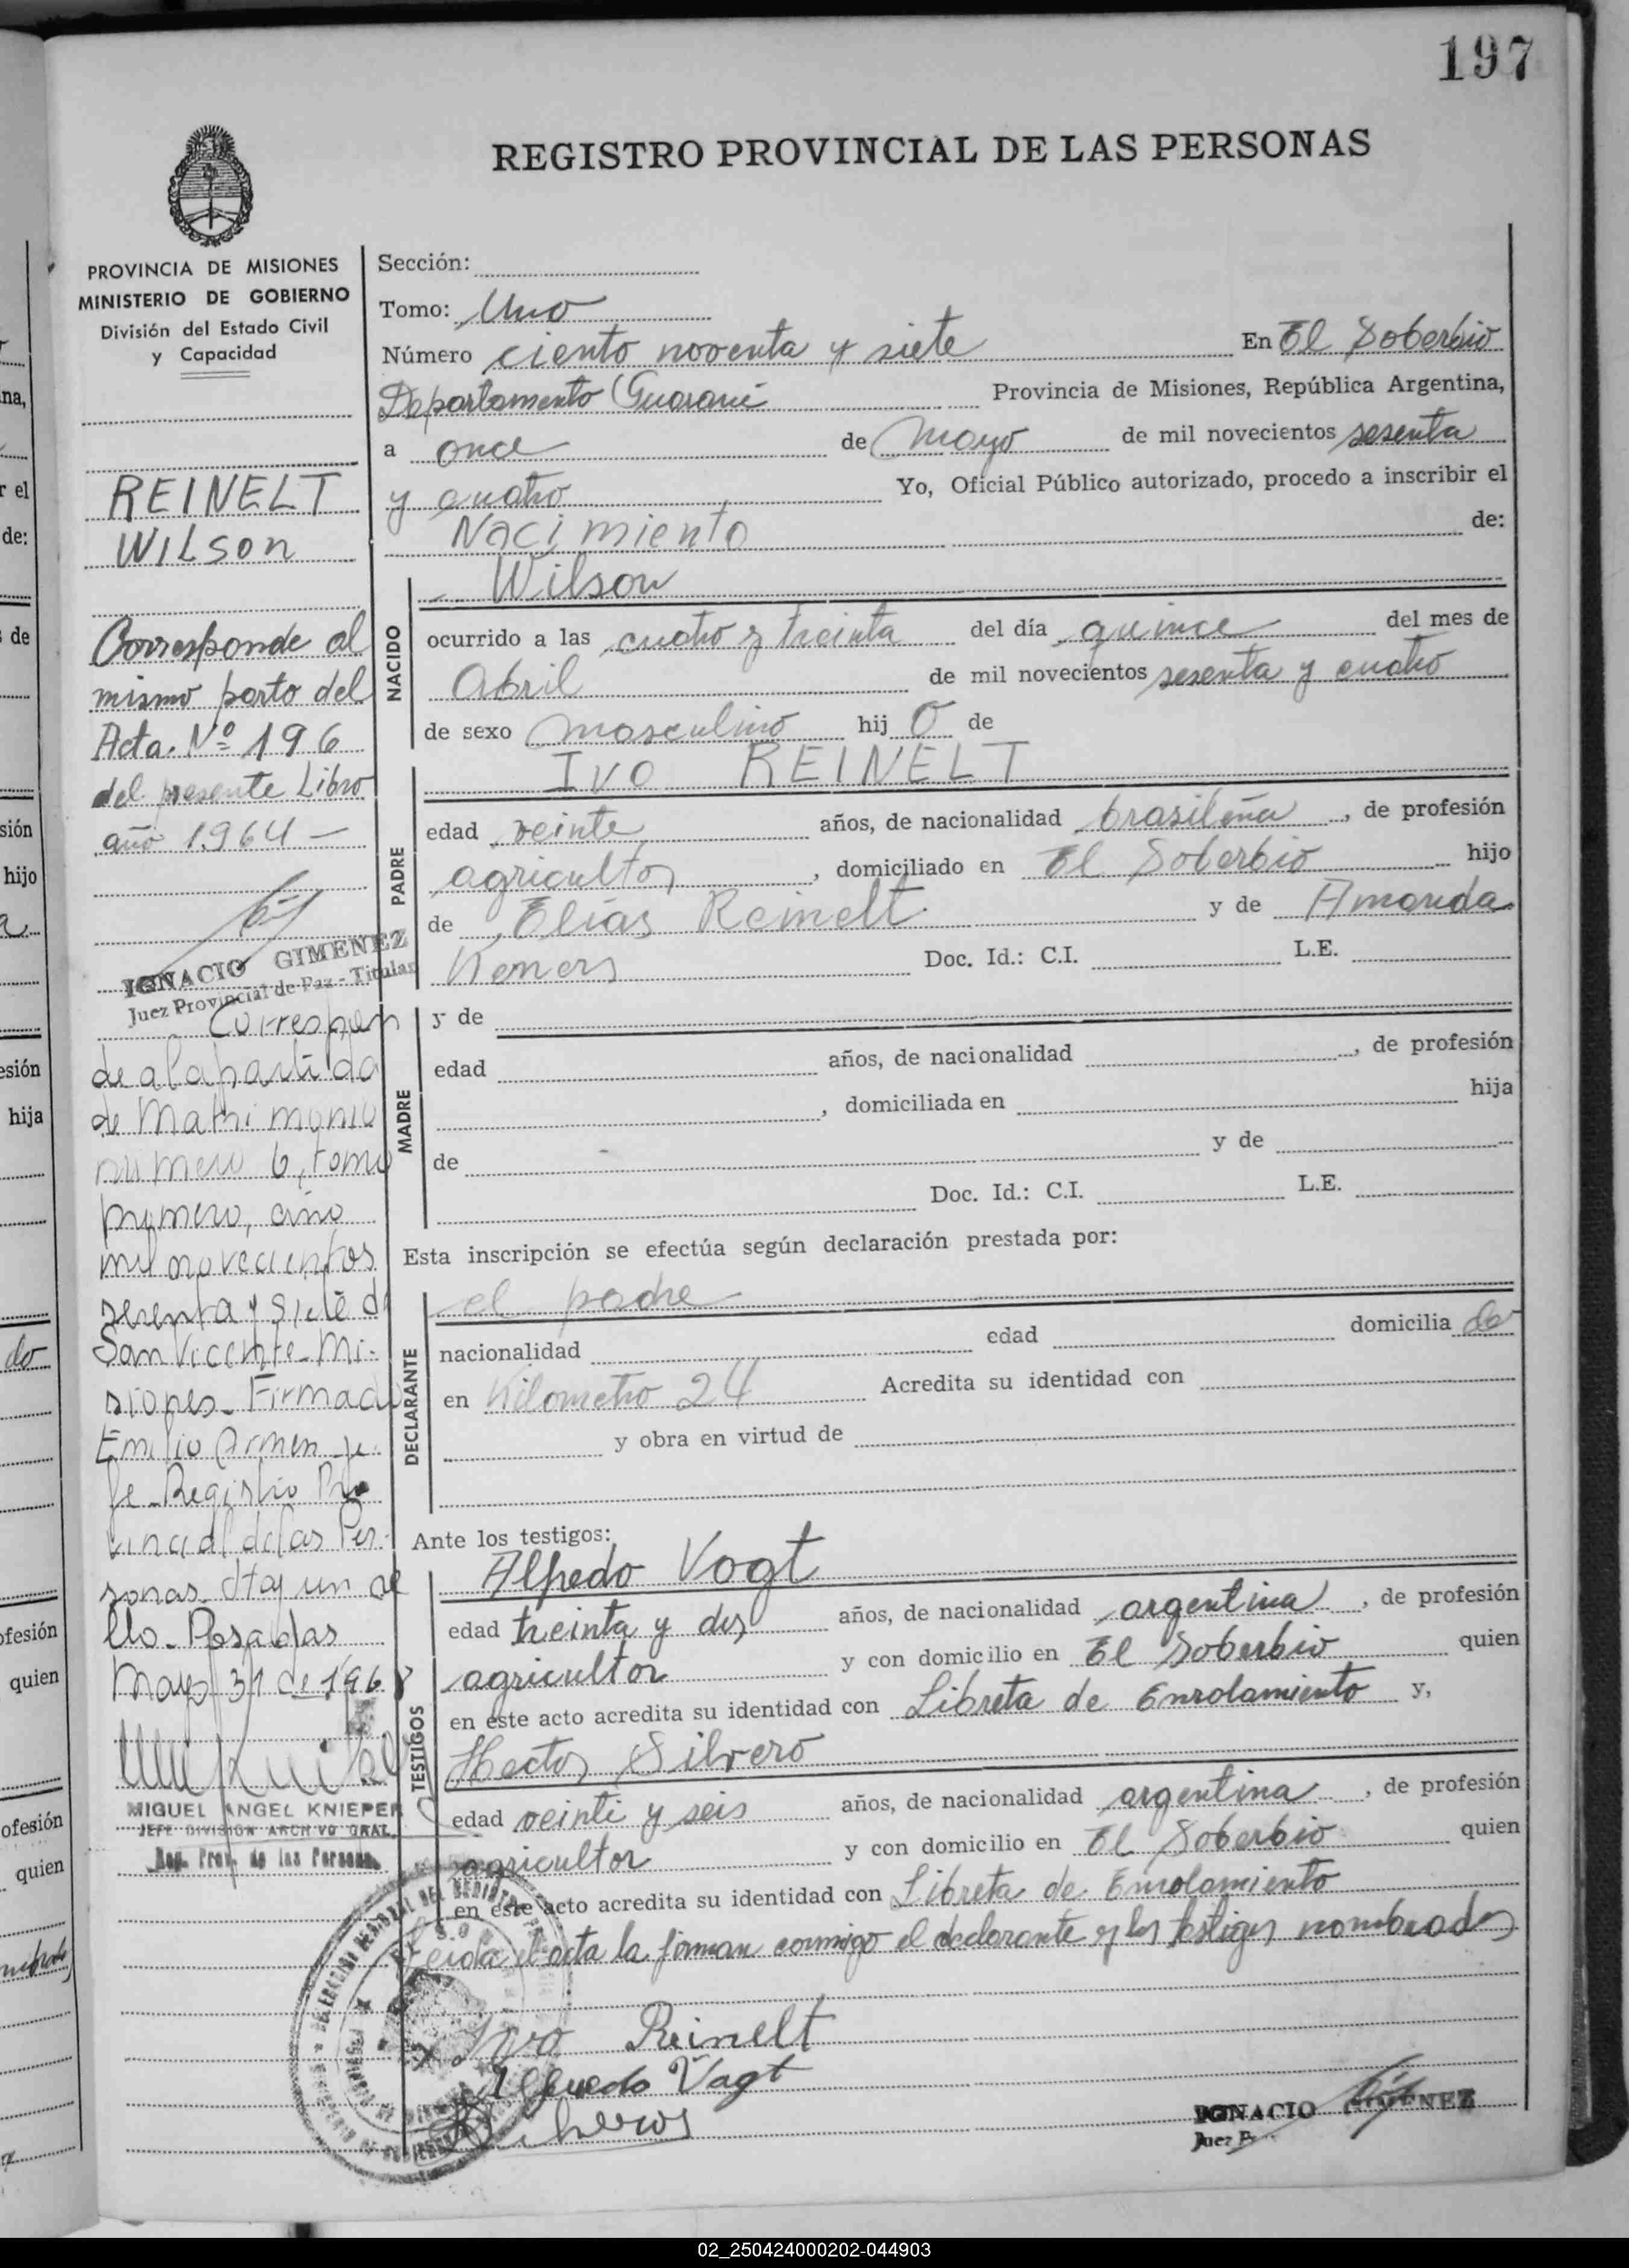 197
REGISTRO PROVINCIAL DE LAS PERSONAS
PROVINCIA DE MISIONES
MINISTERIO DE GOBIERNO
División del Estado Civil
y Capacidad
REINELT
WILSON
Corresponde al
mismo parto del
Acta. Nº 196
del presente Libro
año 1964 —
IGNACIO GIMENEZ
Juez Provincial de Paz - Titular
Correspon
de a la partida
de Matrimonio
número 6, tomo
primero, año
mil novecientos
sesenta y siete d
San Vicente - Mi-
siones - Firmado
Emilio Armen Je-
fe - Registro Pro
vincial de las Per-
sonas. Hay un se
llo - Posadas
Mayo 31 de 1968
MIGUEL ANGEL KNIEPER
JEFE DIVISION ARCHIVO GRAL.
Reg. Prov. de las Personas
Sección:
Tomo: Uno
Número ciento noventa y siete En El Soberbio
Departamento Guaraní Provincia de Misiones, República Argentina,
a once de Mayo de mil novecientos sesenta
y cuatro Yo, Oficial Público autorizado, procedo a inscribir el
Nacimiento de:
Wilson
NACIDO
ocurrido a las cuatro y treinta del día quince del mes de
Abril de mil novecientos sesenta y cuatro
de sexo masculino hij o de
Ivo REINELT
PADRE
edad veinte años, de nacionalidad brasileña, de profesión
agricultor, domiciliado en El Soberbio hijo
de Elías Reinelt y de Amanda
Doc. Id.: C.I. L.E.
MADRE
y de
edad años, de nacionalidad , de profesión
, domiciliada en hija
de y de
Doc. Id.: C.I. L.E.
Esta inscripción se efectúa según declaración prestada por:
el padre
DECLARANTE
nacionalidad edad domicilia do
en Kilometro 24 Acredita su identidad con
y obra en virtud de
Ante los testigos:
Alfredo Vogt
TESTIGOS
edad treinta y dos años, de nacionalidad argentina, de profesión
agricultor y con domicilio en El Soberbio quien
en este acto acredita su identidad con Libreta de Enrolamiento y,
Hector Silvero
edad veinti y seis años, de nacionalidad argentina, de profesión
agricultor y con domicilio en El Soberbio quien
en este acto acredita su identidad con Libreta de Enrolamiento
Leida el acta la firman conmigo el declarante y los testigos nombrados
Ivo Reinelt
Alfredo Vogt
IGNACIO GIMENEZ
Juez
02_250424000202-044903